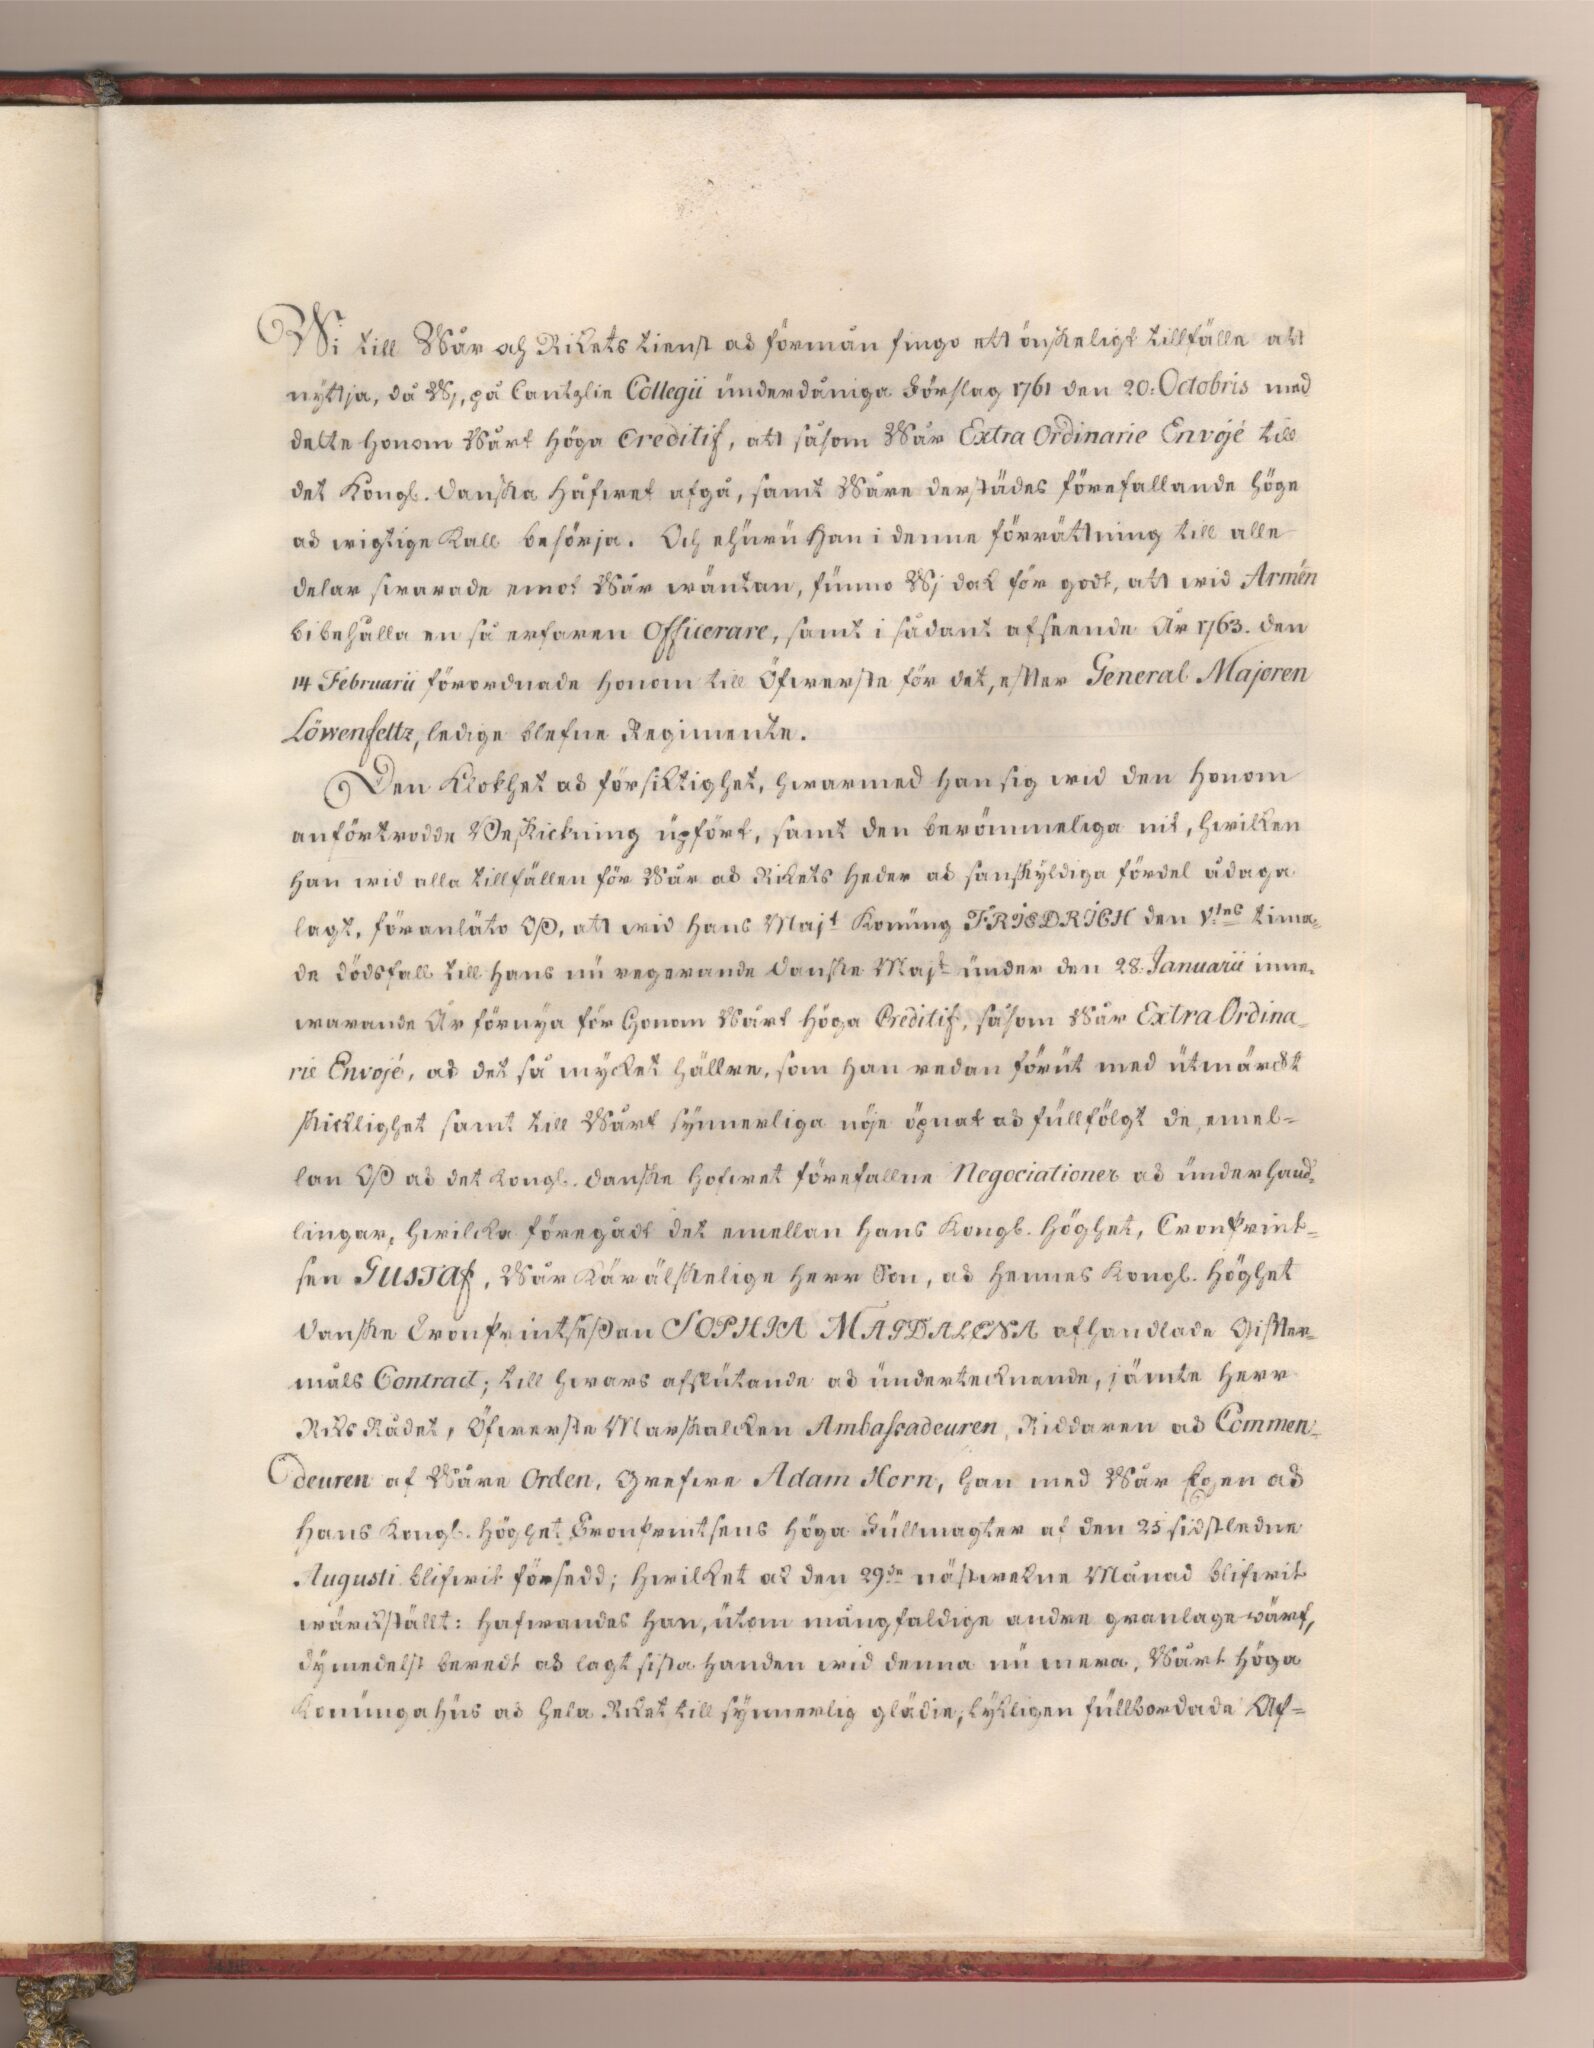 Wi till Wår och Rikets tienst och förmån fingo ett önskeligt tillfälle att
nyttja, då Wj, på Cantzlie Collegii underdåniga Förslag 1761 den 20. Octobris med
delte honom Wårt höga Creditif, att såsom Wår Extra Ordinarie Envojé till
det Kongl. Danska Håfwet afgå, samt Wåre derstädes förefallande höge
och wigtige Kall besörja. Och ehuru han i denne förrättning till alle
delar swarade emot Wår wäntan, funno Wj dock för godt, att wid Arméen
bibehålla en så erfaren Officerare, samt i sådant afseende År 1763. den
14 Februarii förordnade honom till Öfwerste för det, efter General Majoren
Löwenfeltz, ledige blefne Regimente.
Den Klokhet och försiktighet, hwarmed han sig wid den honom
anförtrodde Beskickning upfört, samt den berömmeliga nit, hwilken
han wid alla tillfällen för Wår och Rikets heder och sanskyldiga fördel ådaga
lagt, föranläto Oss, att wid Hans Maj:t Konung FRIEDRICH den V:tes tima-
de dödsfall till Hans nu regerande Danske Maj:t under den 28. Januarii inne-
warande År förnya för Honom Wårt höga Creditif, såsom Wår Extra Ordina-
rie Envojé, och det så mycket hällre, som han redan förut med utmärckt
skicklighet samt till Wårt synnerliga nöje öpnat och fullfölgt de, emel-
lan Oss och det Kongl. Danske Hofwet förefallne Negociationer och underhand-
lingar, hwilcka föregådt det emellan Hans Kongl. Höghet, Cronprint-
sen GUSTAf, Wår Kär älskelige Herr Son, och Hennes Kongl. Höghet
Danske Cronprintsessan SOPHIA MAGDALENA afhandlade Gifter-
måls Contract; till hwars afslutande och undertecknande, jämte Herr
Riks Rådet, Öfwerste Marskalcken Ambassadeuren, Riddaren och Commen-
deuren af Wåre Orden, Grefwe Adam Horn, han med Wår Egen och
Hans Kongl. Höghet Cronprintsens höga Fullmagter af den 25 sidstledne
Augusti blifwit försedd; hwilket ock den 29:de nästwekne Månad blifwit
wärckställt: hafwandes han, utom mångfaldige andre granlage wärf,
dymedelst beredt och lagt sista handen wid denna nu mera, Wårt höga
Konungahus och hela Riket till synnerlig glädie, lykligen fullbordade Af-